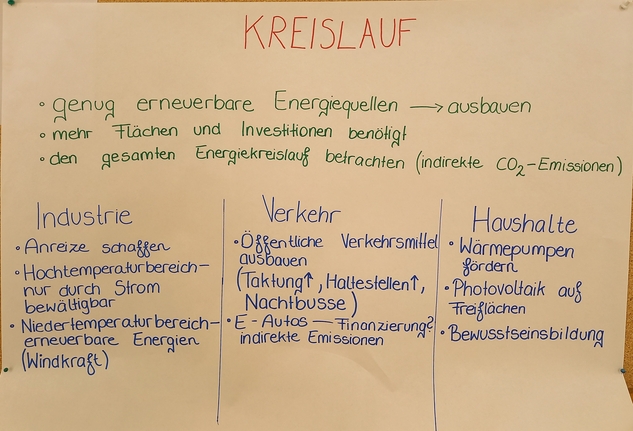 KREISLAUF
◦ genug erneuerbare Energiequellen → ausbauen
◦ mehr Flächen und Investitionen benötigt
◦ den gesamten Energiekreislauf betrachten (indirekte CO₂-Emissionen)
Industrie
• Anreize schaffen
• Hochtemperaturbereich-
nur durch Strom
bewältigbar
• Niedertemperaturbereich-
erneuerbare Energien
(Windkraft)
Verkehr
• Öffentliche Verkehrsmittel
ausbauen
(Taktung↑, Haltestellen↑,
Nachtbusse)
• E-Autos — Finanzierung?
indirekte Emissionen
Haushalte
• Wärmepumpen
fördern
• Photovoltaik auf
Freiflächen
• Bewusstseinsbildung